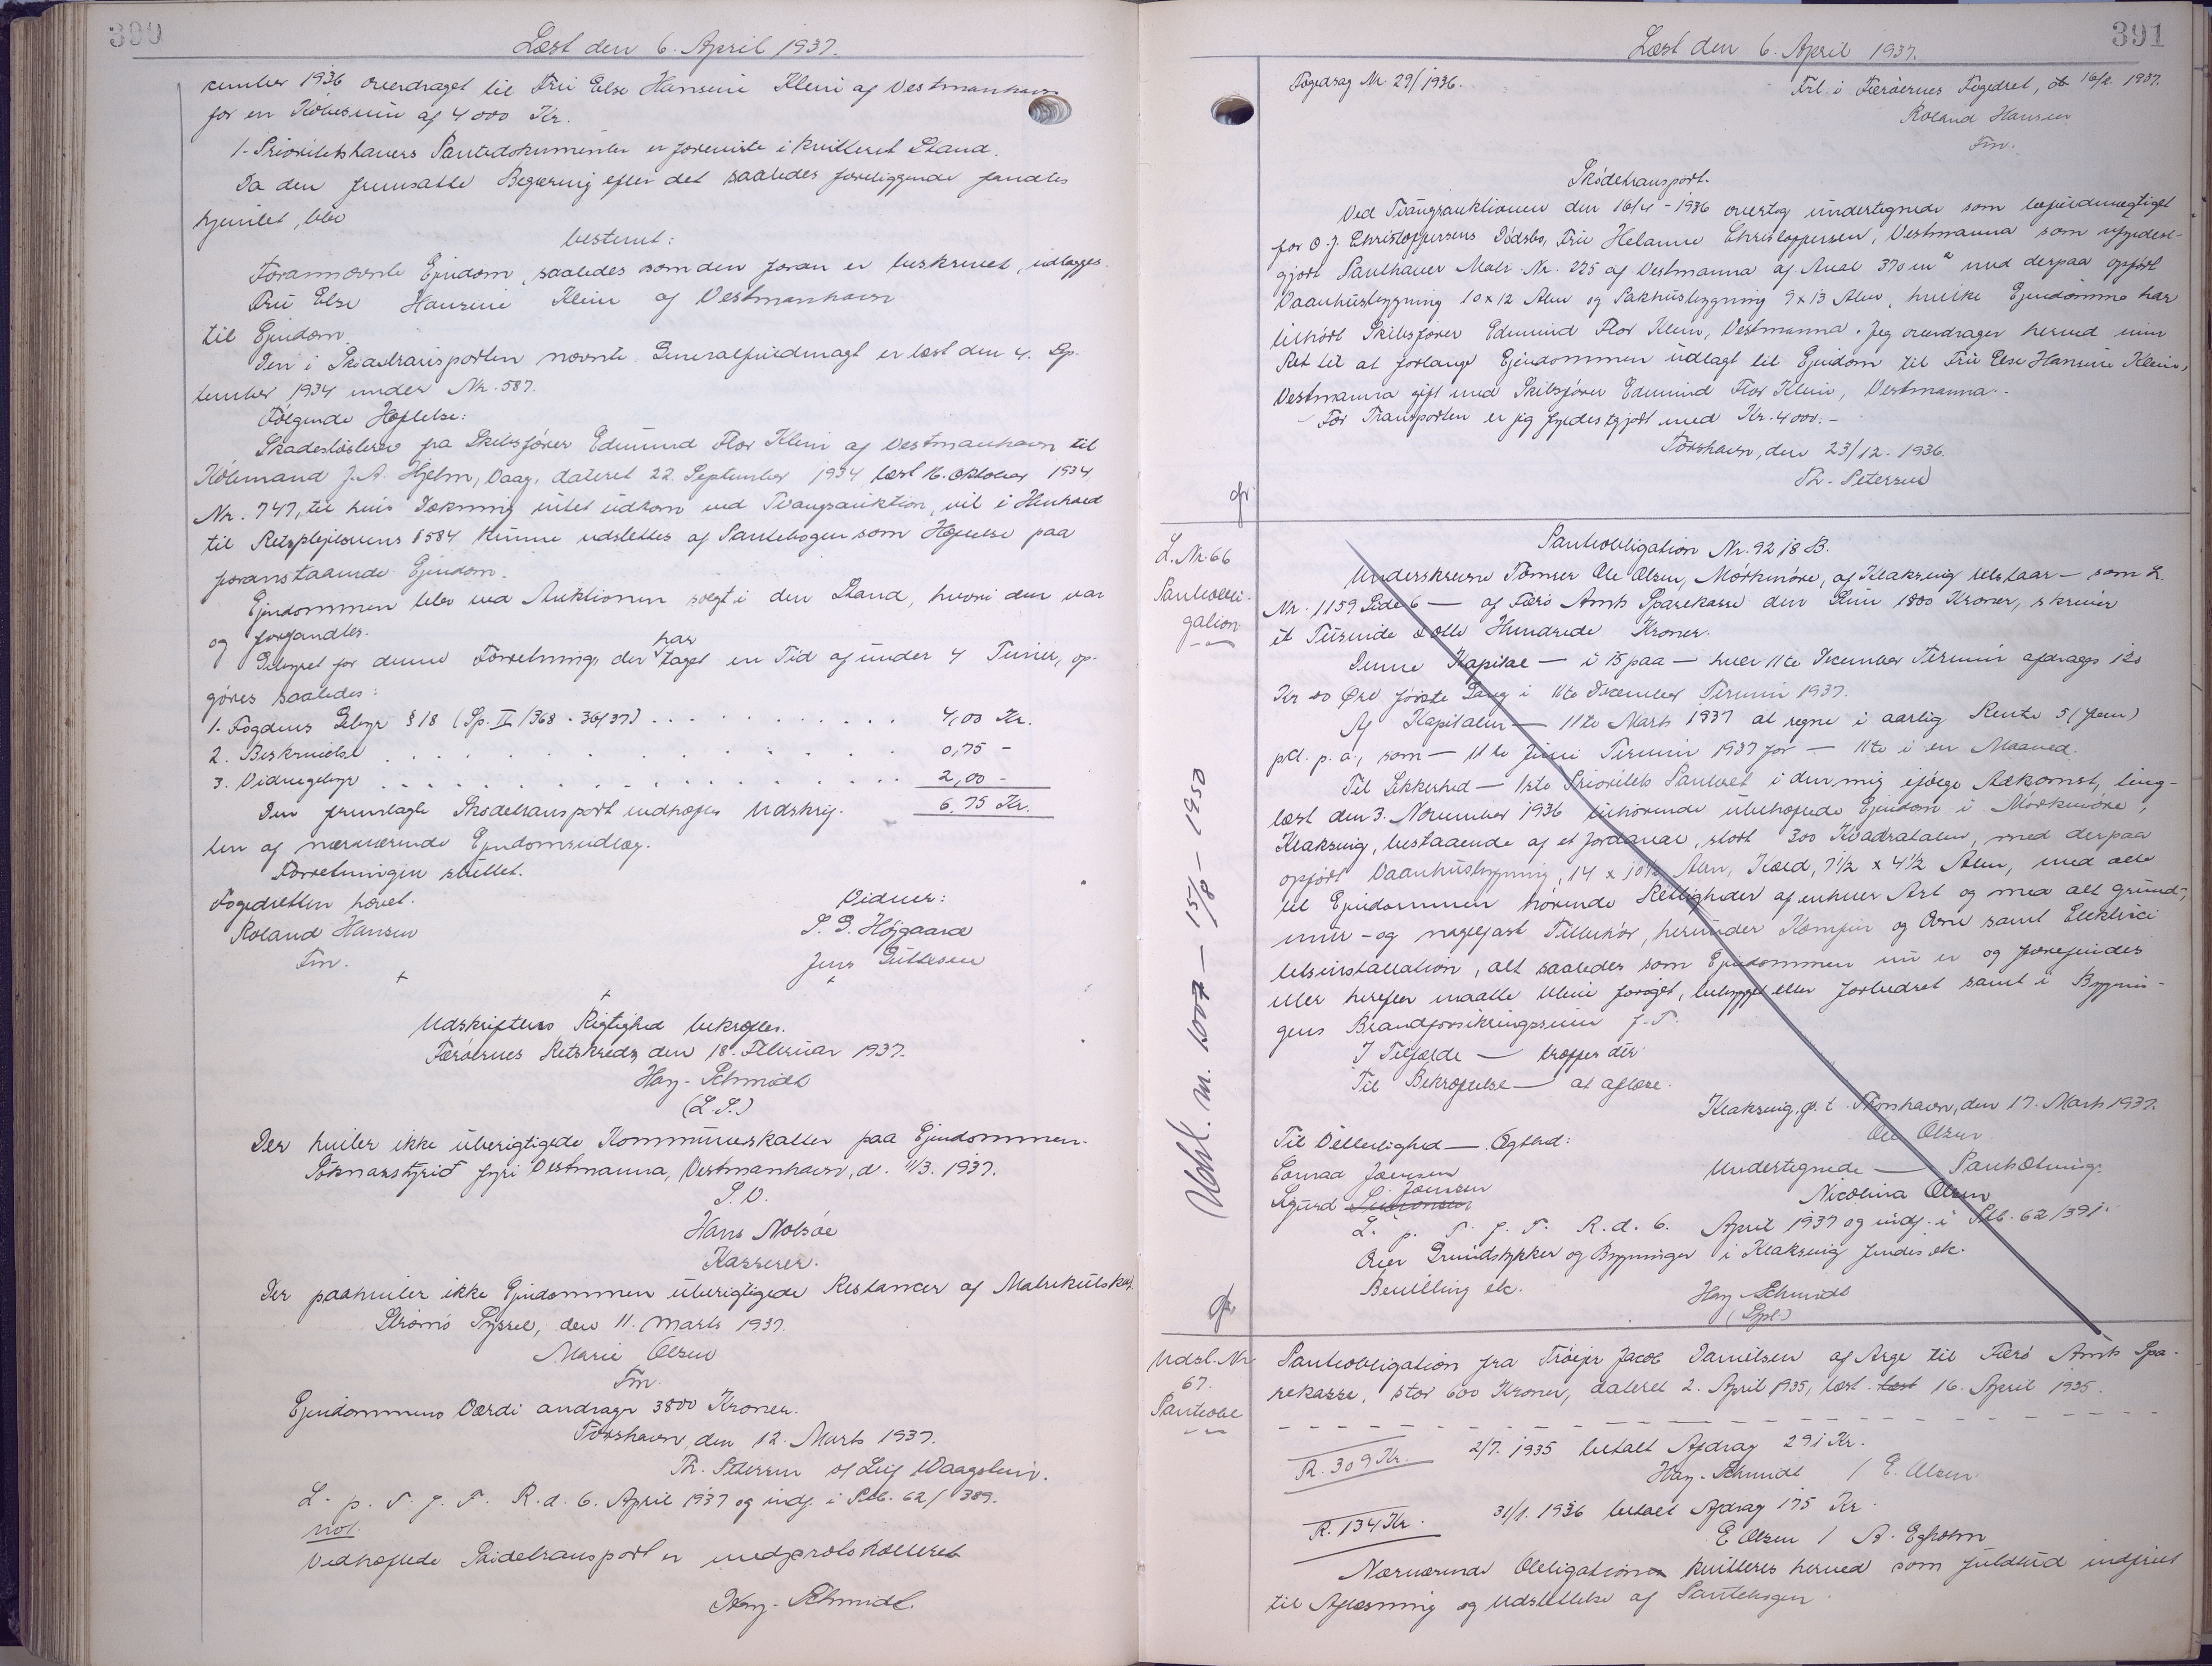 390
Læst den 6. April 1937.
cember 1936 overdraget til Fru Else Hansine Klein af Vestmanhavn
for en Købesum af 4000 Kr.
1. Prioritetshavers Pantedokumenter er foreviste i kvitteret Stand.
Da den fremsatte Begæring efter det saaledes foreliggende fandtes
hjemlet, blev
bestemt:
Forannævnte Ejendom, saaledes som den foran er beskrevet, udlægges
Fru Else Hansine Klein af Vestmanhavn
til Ejendom.
Den i Skødetransporten nævnte Generalfuldmagt er læst den 4. Sep-
tember 1934 under Nr. 587.
Følgende Hæftelse:
Skadesløsbrev fra Skibsfører Edmund Flor Klein af Vestmanhavn til
Købmand J. A. Hjelm, Vaag, dateret 22. September 1934, læst 16. Oktober 1934
Nr. 747, til hvis Dækning intet udkom ved Tvangsauktion, vil i Henhold
til Retsplejelovens § 584 kunne udslettes af Pantebogen som Hæftelse paa
foranstaaende Ejendom.
Ejendommen blev ved Auktionen solgt i den Stand, hvori den var
og forfandtes.
Gebyret for denne Forretning, der har taget en Tid af under 4 Timer, op-
gøres saaledes:
1. Fogdens Gebyr § 18 (Sp. II/368 - 36/37) . . . . . . . . . . 4,00 Kr.
2. Beskrivelse . . . . . . . . . . 0,75 -
3. Vidnegebyr . . . . . . . . . . 2,00 -
6.75 Kr.
Den fremlagte Skødetransport vedhæftes Udskrif-
ten af nærværende Ejendomsudlæg.
Forretningen sluttet.
Fogedretten hævet. Vidner:
Roland Hansen S. P. Højgaard
Fm. Jens Guttesen
Udskriftens Rigtighed bekræftes.
Færøernes Retskreds, den 18. Februar 1937.
Hay-Schmidt
(L. S.)
Der hviler ikke uberigtigede Kommuneskatter paa Ejendommen.
Sóknarstýrið fyri Vestmanna, Vestmanhavn, d. 11/3. 1937.
S. V.
Hans Nolsøe
Kasserer.
Der paahviler ikke Ejendommen uberigtigede Restancer af Matrikulskat.
Strømø Syssel, den 11. Marts 1937.
Marie Olsen
Fm.
Ejendommens Værdi andrager 3800 Kroner.
Tórshavn, den 12. Marts 1937.
Th. Petersen og Leif Waagstein.
L. p. T. f. F. R. d. 6. April 1937 og indf. i Ptb. 62/389.
not.
Vedhæftede Skødetransport er medprotokolleret
Hay-Schmidt.
391
Læst den 6. April 1937.
Fogedsag Nr. 29/1936. Frl. i Færøernes Fogedret, d. 16/2. 1937.
Roland Hansen
Fm.
Skødetransport.
Ved Tvangsauktionen den 16/4 - 1936 overtog undertegnede som befuldmægtiget
for O. J. Christoffersens Dødsbo, Fru Helanne Christoffersen, Vestmanna som ufyldest-
gjort Panthaver Matr. Nr. 225 af Vestmanna af Areal 370 m² med derpaa opført
Vaanhusbygning 10 x 12 Alen og Pakhusbygning 9 x 13 Alen, hvilke Ejendomme har
tilhørt Skibsfører Edmund Flor Klein, Vestmanna. Jeg overdrager herved min
Ret til at forlange Ejendommen udlagt til Ejendom til Fru Else Hansine Klein,
Vestmanna gift med Skibsfører Edmund Flor Klein, Vestmanna.
For Transporten er jeg fyldestgjort med Kr. 4000.-
Tórshavn, den 23/12. 1936.
Th. Petersen
L. Nr. 66
Pantobli-
gation
Udsl. m. L007 - 15/8 - 1950
Pantobligation Nr. 9218 B.
Underskrevne Tømrer Ole Olsen, Mörkmóre, af Klaksvig tilstaar — som L.
Nr. 1159 Side 6 — af Færø Amts Sparekasse den Sum 1800 Kroner, skriver
et Tusinde & otte Hundrede Kroner.
Denne Kapital — i 15 paa — hver 11te December Termin afdrages 120
Kr 00 Øre første Gang i 11te December Termin 1937.
Af Kapitalen — 11te Marts 1937 at regne i aarlig Rente 5 (fem)
pCt. p. a., som — 11te Juni Termin 1937 for — 11te i en Maaned.
Til Sikkerhed — 1ste Prioritets Panteret i den, mig ifølge Adkomst, ting-
læst den 3. November 1936 tilhørende ubehæftede Ejendom i Mörkmóre,
Klaksvig, bestaaende af et Jordareal, stort 300 Kvadratalen, med derpaa
opført Vaanhusbygning, 14 x 10½ Alen, Kæld, 7½ x 4½ Alen, med alle
til Ejendommen hørende Rettigheder af enhver Art og med alt grund-,
mur- og nagelfast Tilbehør, herunder Komfur og Ovne samt Elektrici
tetsinstallation, alt saaledes som Ejendommen nu er og forefindes
eller herefter maatte blive forøget, bebygget eller forbedret samt i Bygnin-
gens Brandforsikringssum f. T.
I Tilfælde — træffes der
Til Bekræftelse — at aflæse.
Klaksvig, p. t. Thorshavn, den 17. Marts 1937.
Ole Olsen
Til Vitterlighed — Ægthed: Undertegnede — Pantsætning.
Conrad Joensen Nicolina Olsen
Sigurd Joensen
L. p. T. f. F. R. d. 6. April 1937 og indf. i Ptb. 62/391.
Over Grundstykker og Bygninger i Klaksvig findes etc.
Bevilling etc.
Hay-Schmidt
(Spl)
Udsl. Nr.
67.
Pantobl
Pantobligation fra Trøejer Jacob Danielsen af Arge til Færø Amts Spa-
rekasse, stor 600 Kroner, dateret 2. April 1935, læst læst 16. April 1935.
R. 309 Kr. 2/7. 1935 betalt Afdrag 291 Kr.
Hay-Schmidt / E. Olsen
R. 134 Kr. 31/1. 1936 betalt Afdrag 175 Kr.
E Olsen / A. Egholm
Nærværende Obligation kvitteres herved som fuldtud indfriet
til Aflæsning og Udslettelse af Pantebogen.